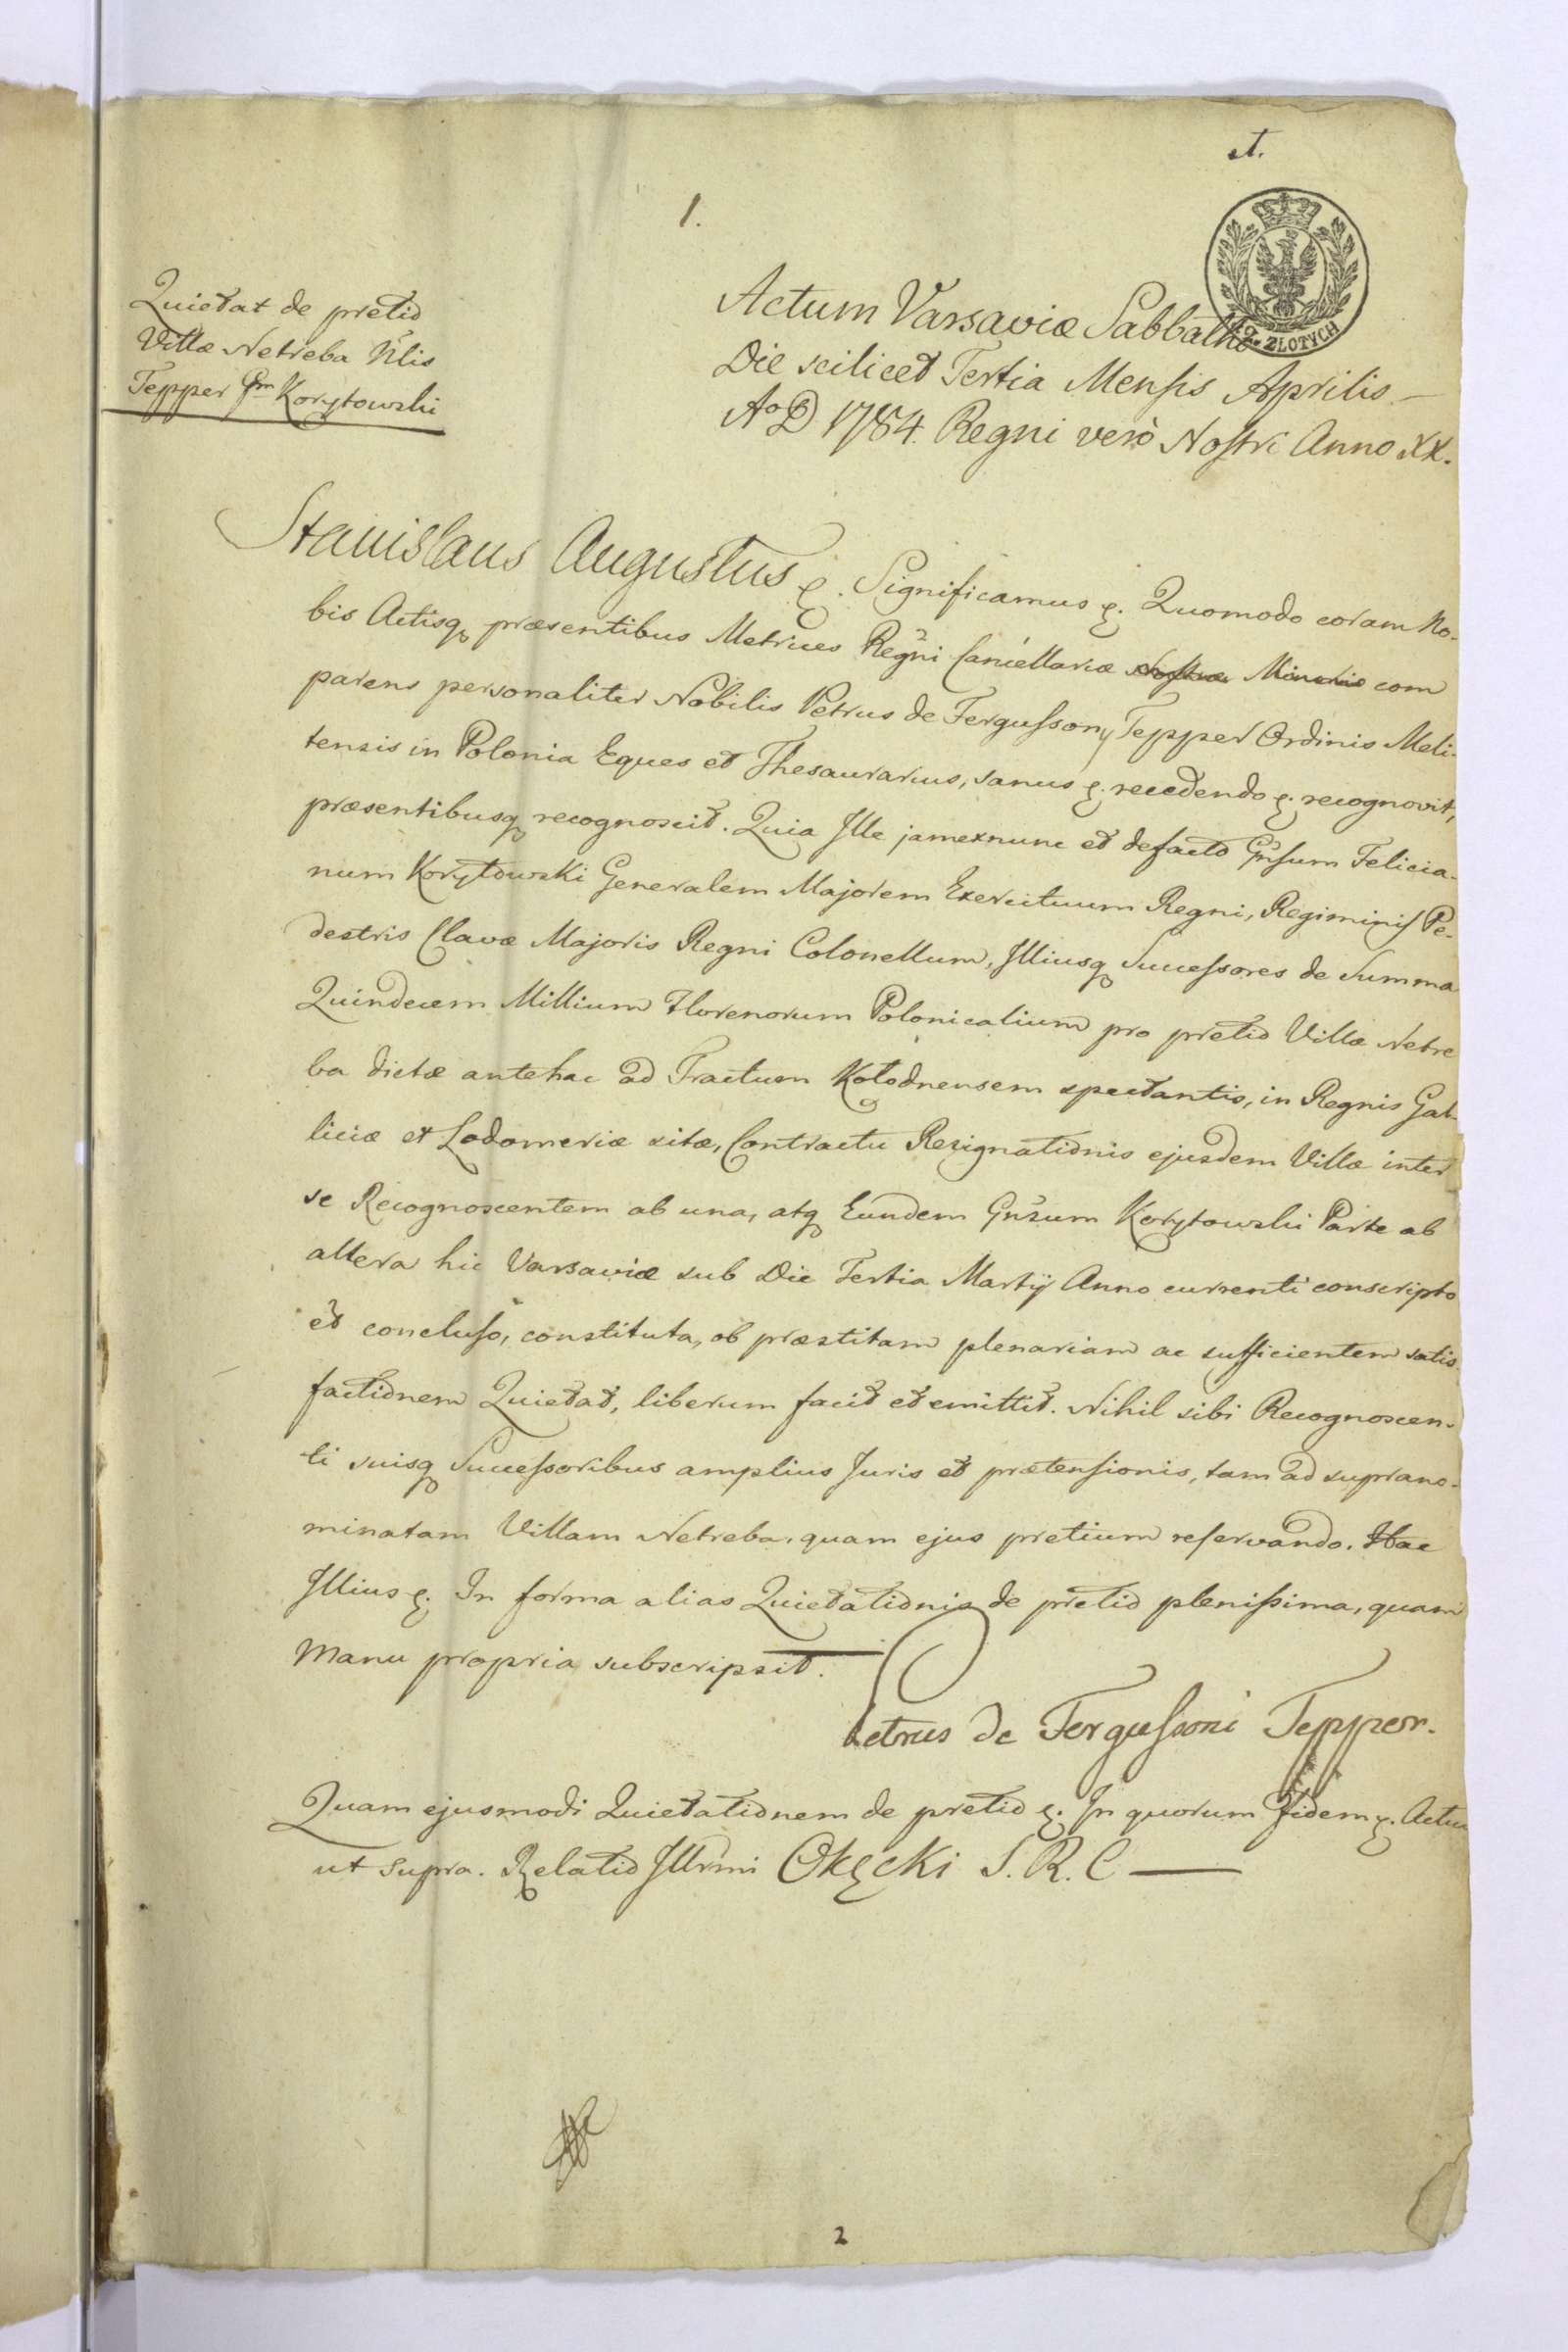 A.
1.
12. ZŁOTYCH
Quietat de pretio
Villæ Netreba Nlis
Tepper Gm Korytowski
Actum Varsaviæ Sabbatho
Die scilicet Tertia Mensis Aprilis
Ao D 1784. Regni verò Nostri Anno XX.
Stanislaus Augustus &. Significamus &. Quomodo coram No-
bis Actisq præsentibus Metrices Regni Cancellariæ Minoris com
parens personaliter Nobilis Petrus de Fergusson Tepper Ordinis Meli-
tensis in Polonia Eques et Thesaurarius, sanus &. recedendo &. recognovit,
præsentibusq recognoscit. Quia Ille jamexnunc et defacto Gnsum Felicia-
num Korytowski Generalem Majorem Exercituum Regni, Regiminis Pe-
destris Clavæ Majoris Regni Colonellum, Illiusq Successores de Summa
Quindecem Millium Florenorum Polonicalium pro pretio Villæ Netre
ba dictæ antehac ad Tractum Kołodnensem spectantis, in Regnis Gal-
liciæ et Lodomeriæ sitæ, Contractu Resignationis ejusdem Villæ inter
se Recognoscentem ab una, atq Eundem Gnsum Korytowski Parte ab
altera hic Varsaviæ sub Die Tertia Martij Anno currenti conscripto
et concluso, constituta, ob præstitam plenariam ac sufficientem satis-
factionem Quietat, liberum facit et emittit. Nihil sibi Recognoscen-
ti suisq Successoribus amplius Juris et prætensionis, tam ad suprano-
minatam Villam Netreba, quam ejus pretium reservando. Hac
Illius &. In forma alias Quietationis de pretio plenissima, quam
Manu propria subscripsit.
Petrus de Fergussoni Tepper.
Quam ejusmodi Quietationem de pretio &. In quorum Fidem &. Actum
ut supra. Relatio Illrmi Okęcki S. R. C
2